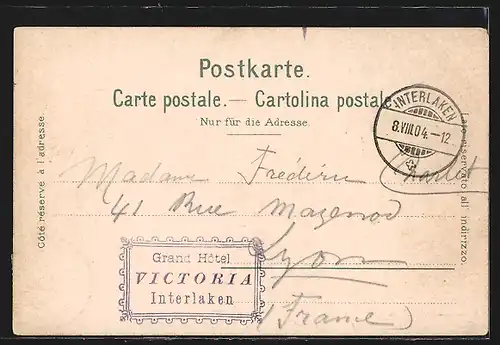 Postkarte.
Carte postale. — Cartolina postale
Nur für die Adresse.
INTERLAKEN
8.VIII.04.-12
Côté réservé à l'adresse.
Lato riservato all' indirizzo.
Madame Frédéric
41 Rue Mazenod
Lyon
(France)
Grand Hôtel
VICTORIA
Interlaken